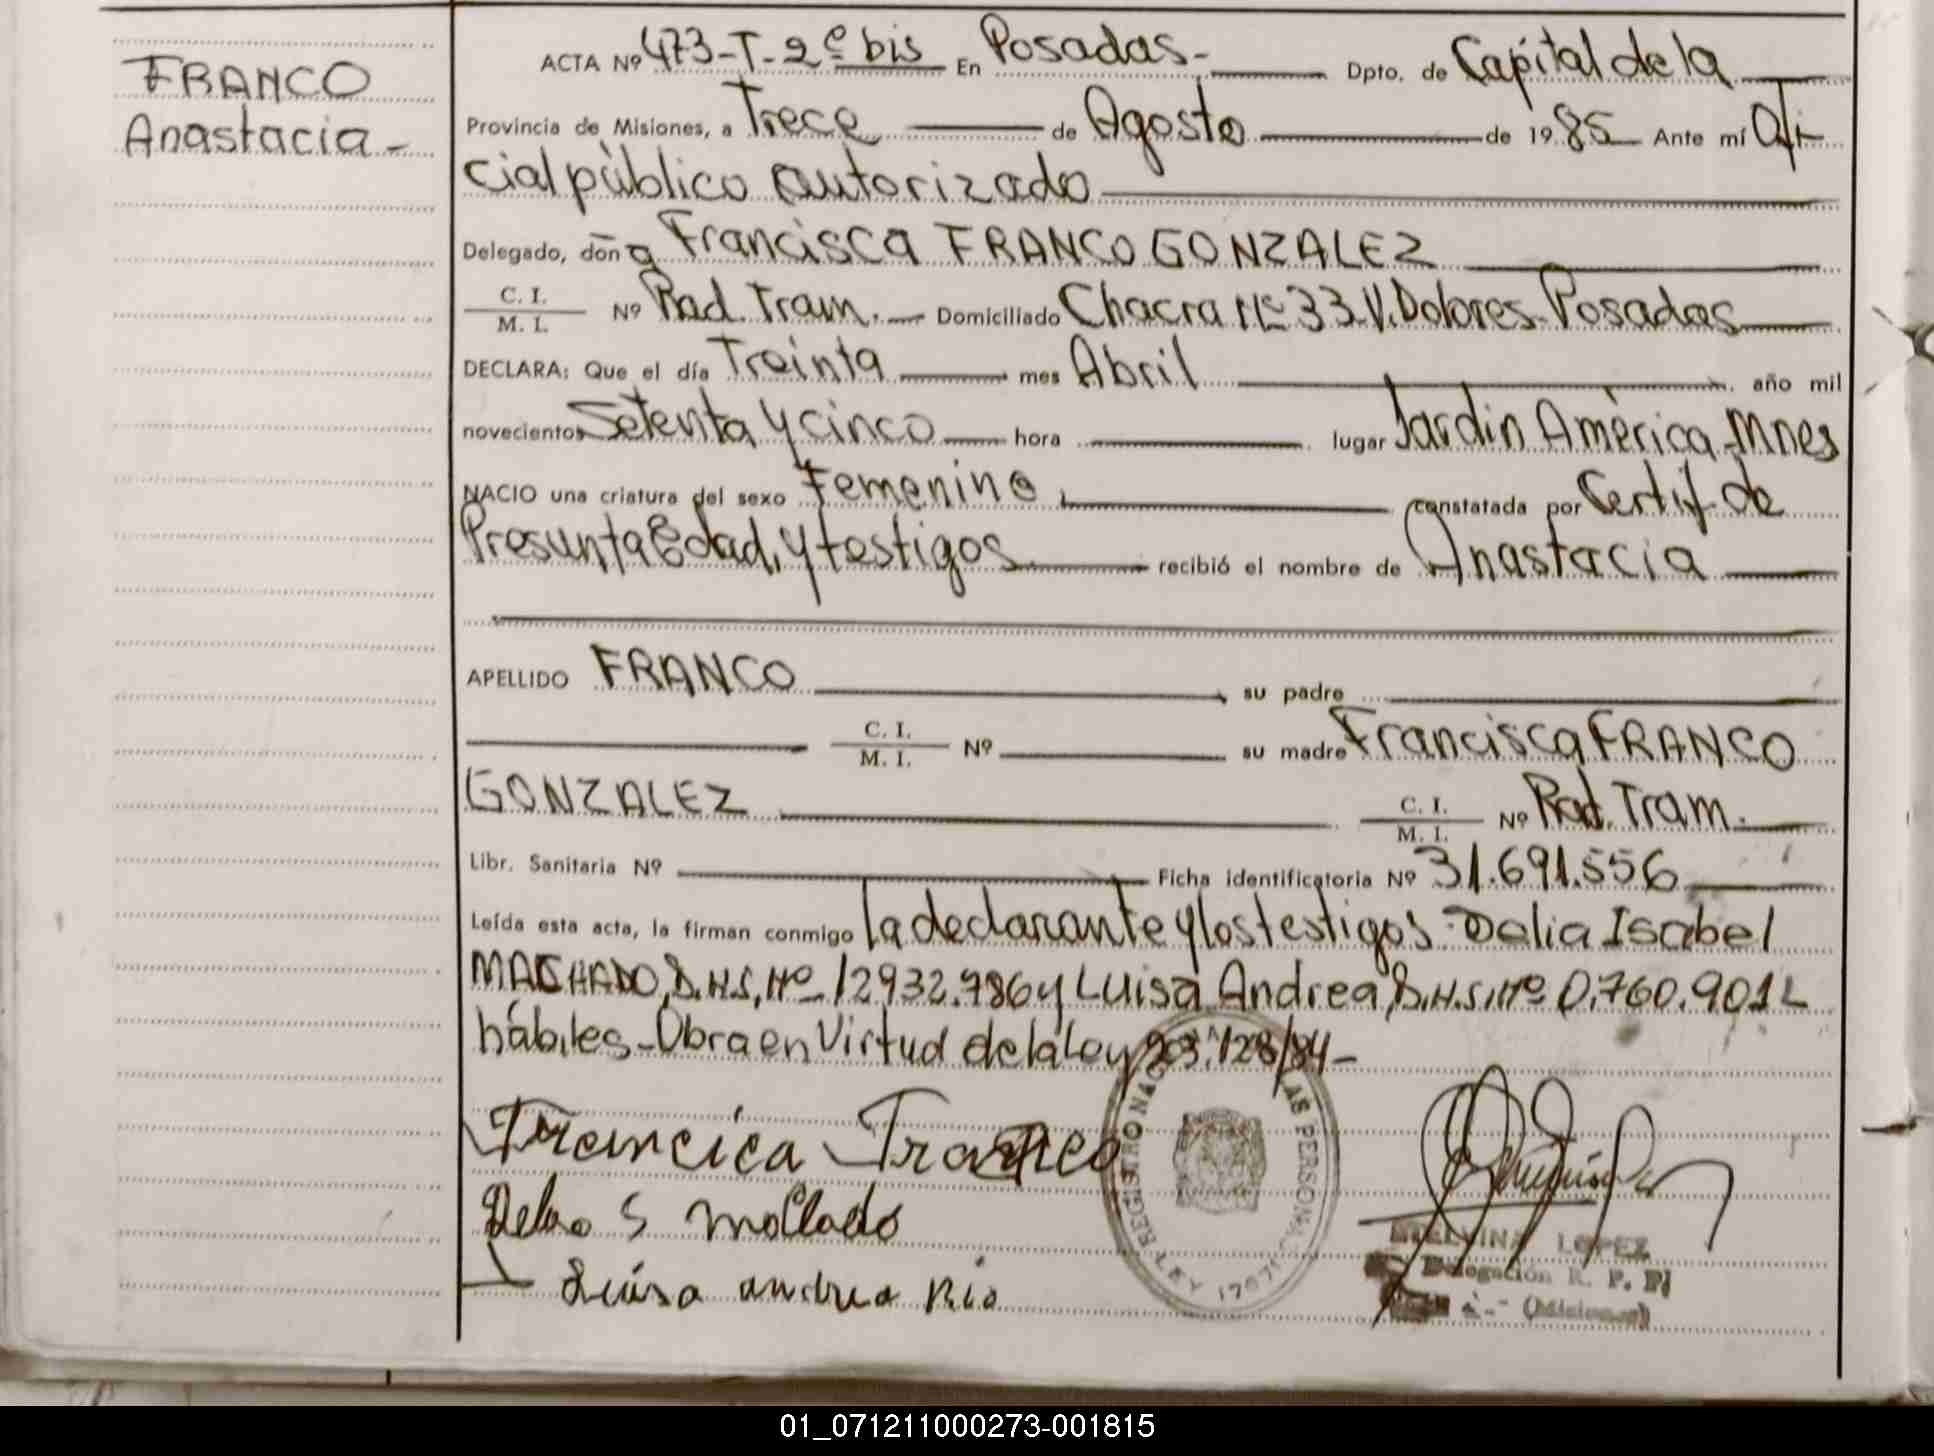 FRANCO
Anastacia -
ACTA Nº 473-T-2º bis En Posadas- Dpto. de Capital de la
Provincia de Misiones, a Trece de Agosto de 1985 Ante mí Ofi-
cial público autorizado
Delegado, doña Francisca FRANCO GONZALEZ
C. I.
M. I. Nº Rad. Tram. Domiciliado Chacra Nº 33 V. Dolores-Posadas
DECLARA: Que el día Treinta mes Abril año mil
novecientos Setenta y cinco hora lugar Jardin América-Mnes
NACIO una criatura del sexo Femenino constatada por Certif. de
Presunta Edad, y testigos recibió el nombre de Anastacia
APELLIDO FRANCO su padre
C. I.
M. I. Nº su madre Francisca FRANCO
GONZALEZ C. I.
M. I. Nº Rad. Tram.
Libr. Sanitaria Nº Ficha identificatoria Nº 31.691.556
Leída esta acta, la firman conmigo la declarante y los testigos - Delia Isabel
MACHADO, D.N.I, Nº 12932.786 y Luisa Andrea, D.N.I, Nº 0.760.901 L
hábiles - Obra en Virtud de la Ley 203.128/84 -
Francica Franco
S
Luisa andrea Rio
REGISTRO NAC LAS PERSONAS
LEY 17671
LOPEZ
Delegación R. P. P.
(Misiones)
01_071211000273-001815